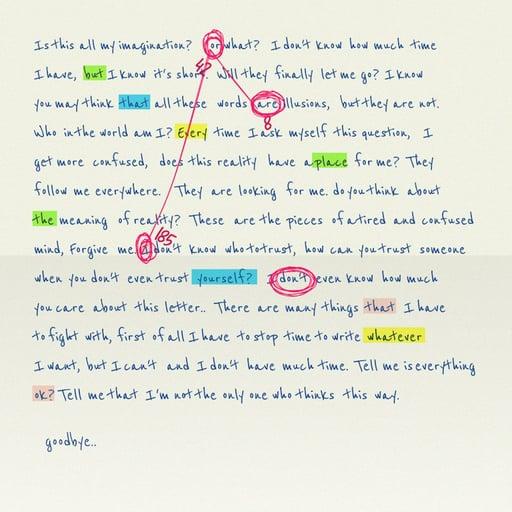 Is this all my imagination? or what? I don't know how much time
I have, but I know it's short. Will they finally let me go? I know
42
you may think that all these words are illusions, but they are not.
8
Who in the world am I? Every time I ask myself this question, I
get more confused, does this reality have a place for me? They
follow me everywhere. They are looking for me. do you think about
the meaning of reality? These are the pieces of a tired and confused
185
mind, Forgive me. I don't know who to trust, how can you trust someone
when you don't even trust yourself? I don't even know how much
you care about this letter.. There are many things that I have
to fight with, first of all I have to stop time to write whatever
I want, but I can't and I don't have much time. Tell me is everything
ok? Tell me that I'm not the only one who thinks this way.
goodbye..